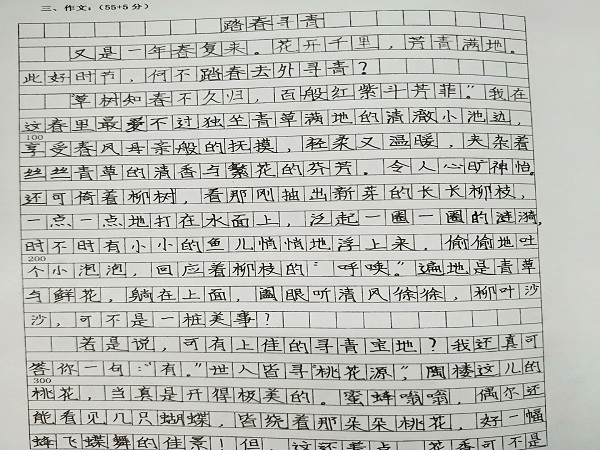 三、作文：（55+5 分）
踏春寻青
又是一年春复来。花开千里，芳青满地。
此好时节，何不踏春去外寻青？
“草树知春不久归，百般红紫斗芳菲。”我在
这春里最爱不过独坐青草满地的清澈小池边，
100
享受春风母亲般的抚摸，轻柔又温暖，夹杂着
丝丝青草的清香与繁花的芬芳。令人心旷神怡。
还可倚着柳树，看那刚抽出新芽的长长柳枝，
一点一点地打在水面上，泛起一圈一圈的涟漪，
时不时有小小的鱼儿悄悄地浮上来，偷偷地吐
200
个小泡泡，回应着柳枝的“呼唤。”遍地是青草
与鲜花，躺在上面，阖眼听清风徐徐，柳叶沙
沙，可不是一桩美事？
若是说，可有上佳的寻青宝地？我还真可
答你一句：“有。”世人皆寻“桃花源”，阁楼这儿的
300
桃花，当真是开得极美的。蜜蜂嗡嗡，偶尔还
能看见几只蝴蝶，皆绕着那朵朵桃花，好一幅
蜂飞蝶舞的佳景！但，这还差点，花香可不是